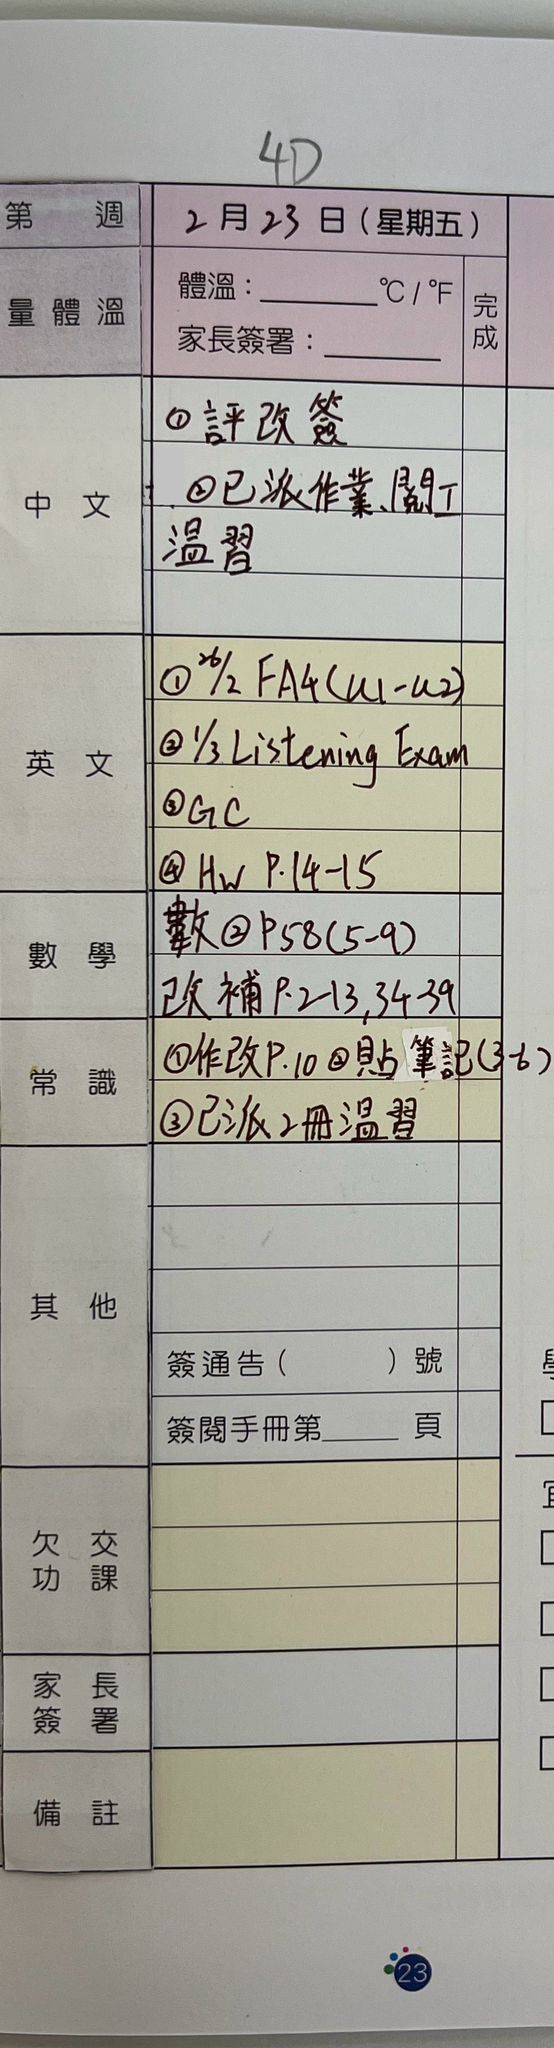 4D
第 週 2月23日(星期五)
量體溫 體溫：______℃/℉ 完成
家長簽署：______
中文 ①評改簽
②已派作業、閱工
溫習
英文 ①26/2 FA4(u1-u2)
②1/3 Listening Exam
③GC
④HW P.14-15
數學 數②P58(5-9)
改補P.2-13,34-39
常識 ①作改P.10②貼筆記(3-6)
③已派2冊溫習
其他
簽通告( )號
簽閱手冊第_____頁
欠交功課
家長簽署
備註
23